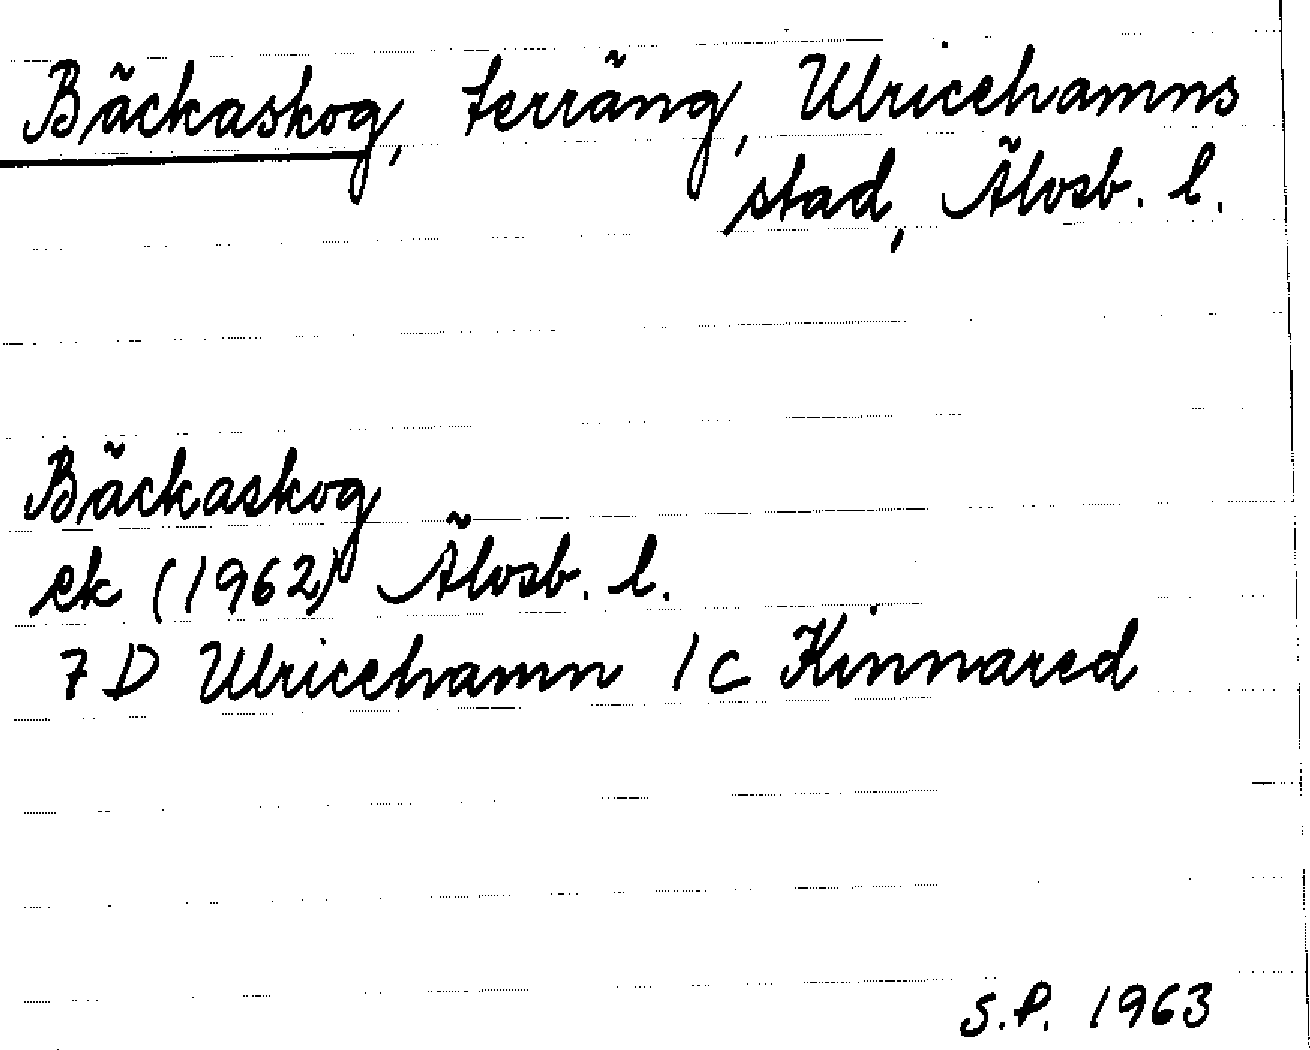 Bäckaskog, terräng, Ulricehamns
stad, Älvsb. l.
Bäckaskog
ek (1962) Älvsb. l.
7 D Ulricehamn 1 c Kinnared
S.P. 1963